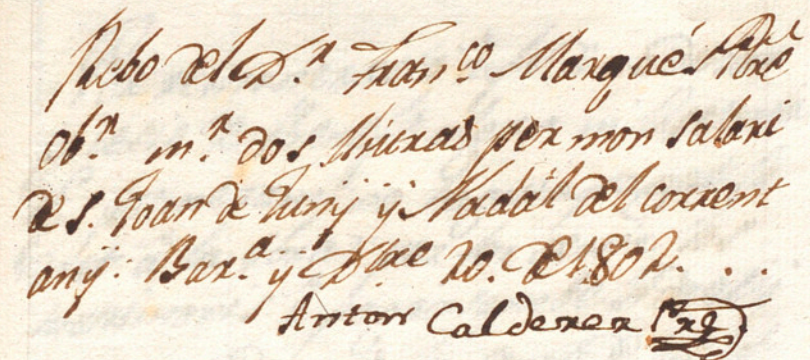 Rebo del Dr. Franco Marqués Pbre
Obr. mr. dos lliuras per mon salari
de S. Joan de Juny y Nadál del corrent
any: Bar.a y Dbre 20. de 1802. . .
Anton Calderer Pre